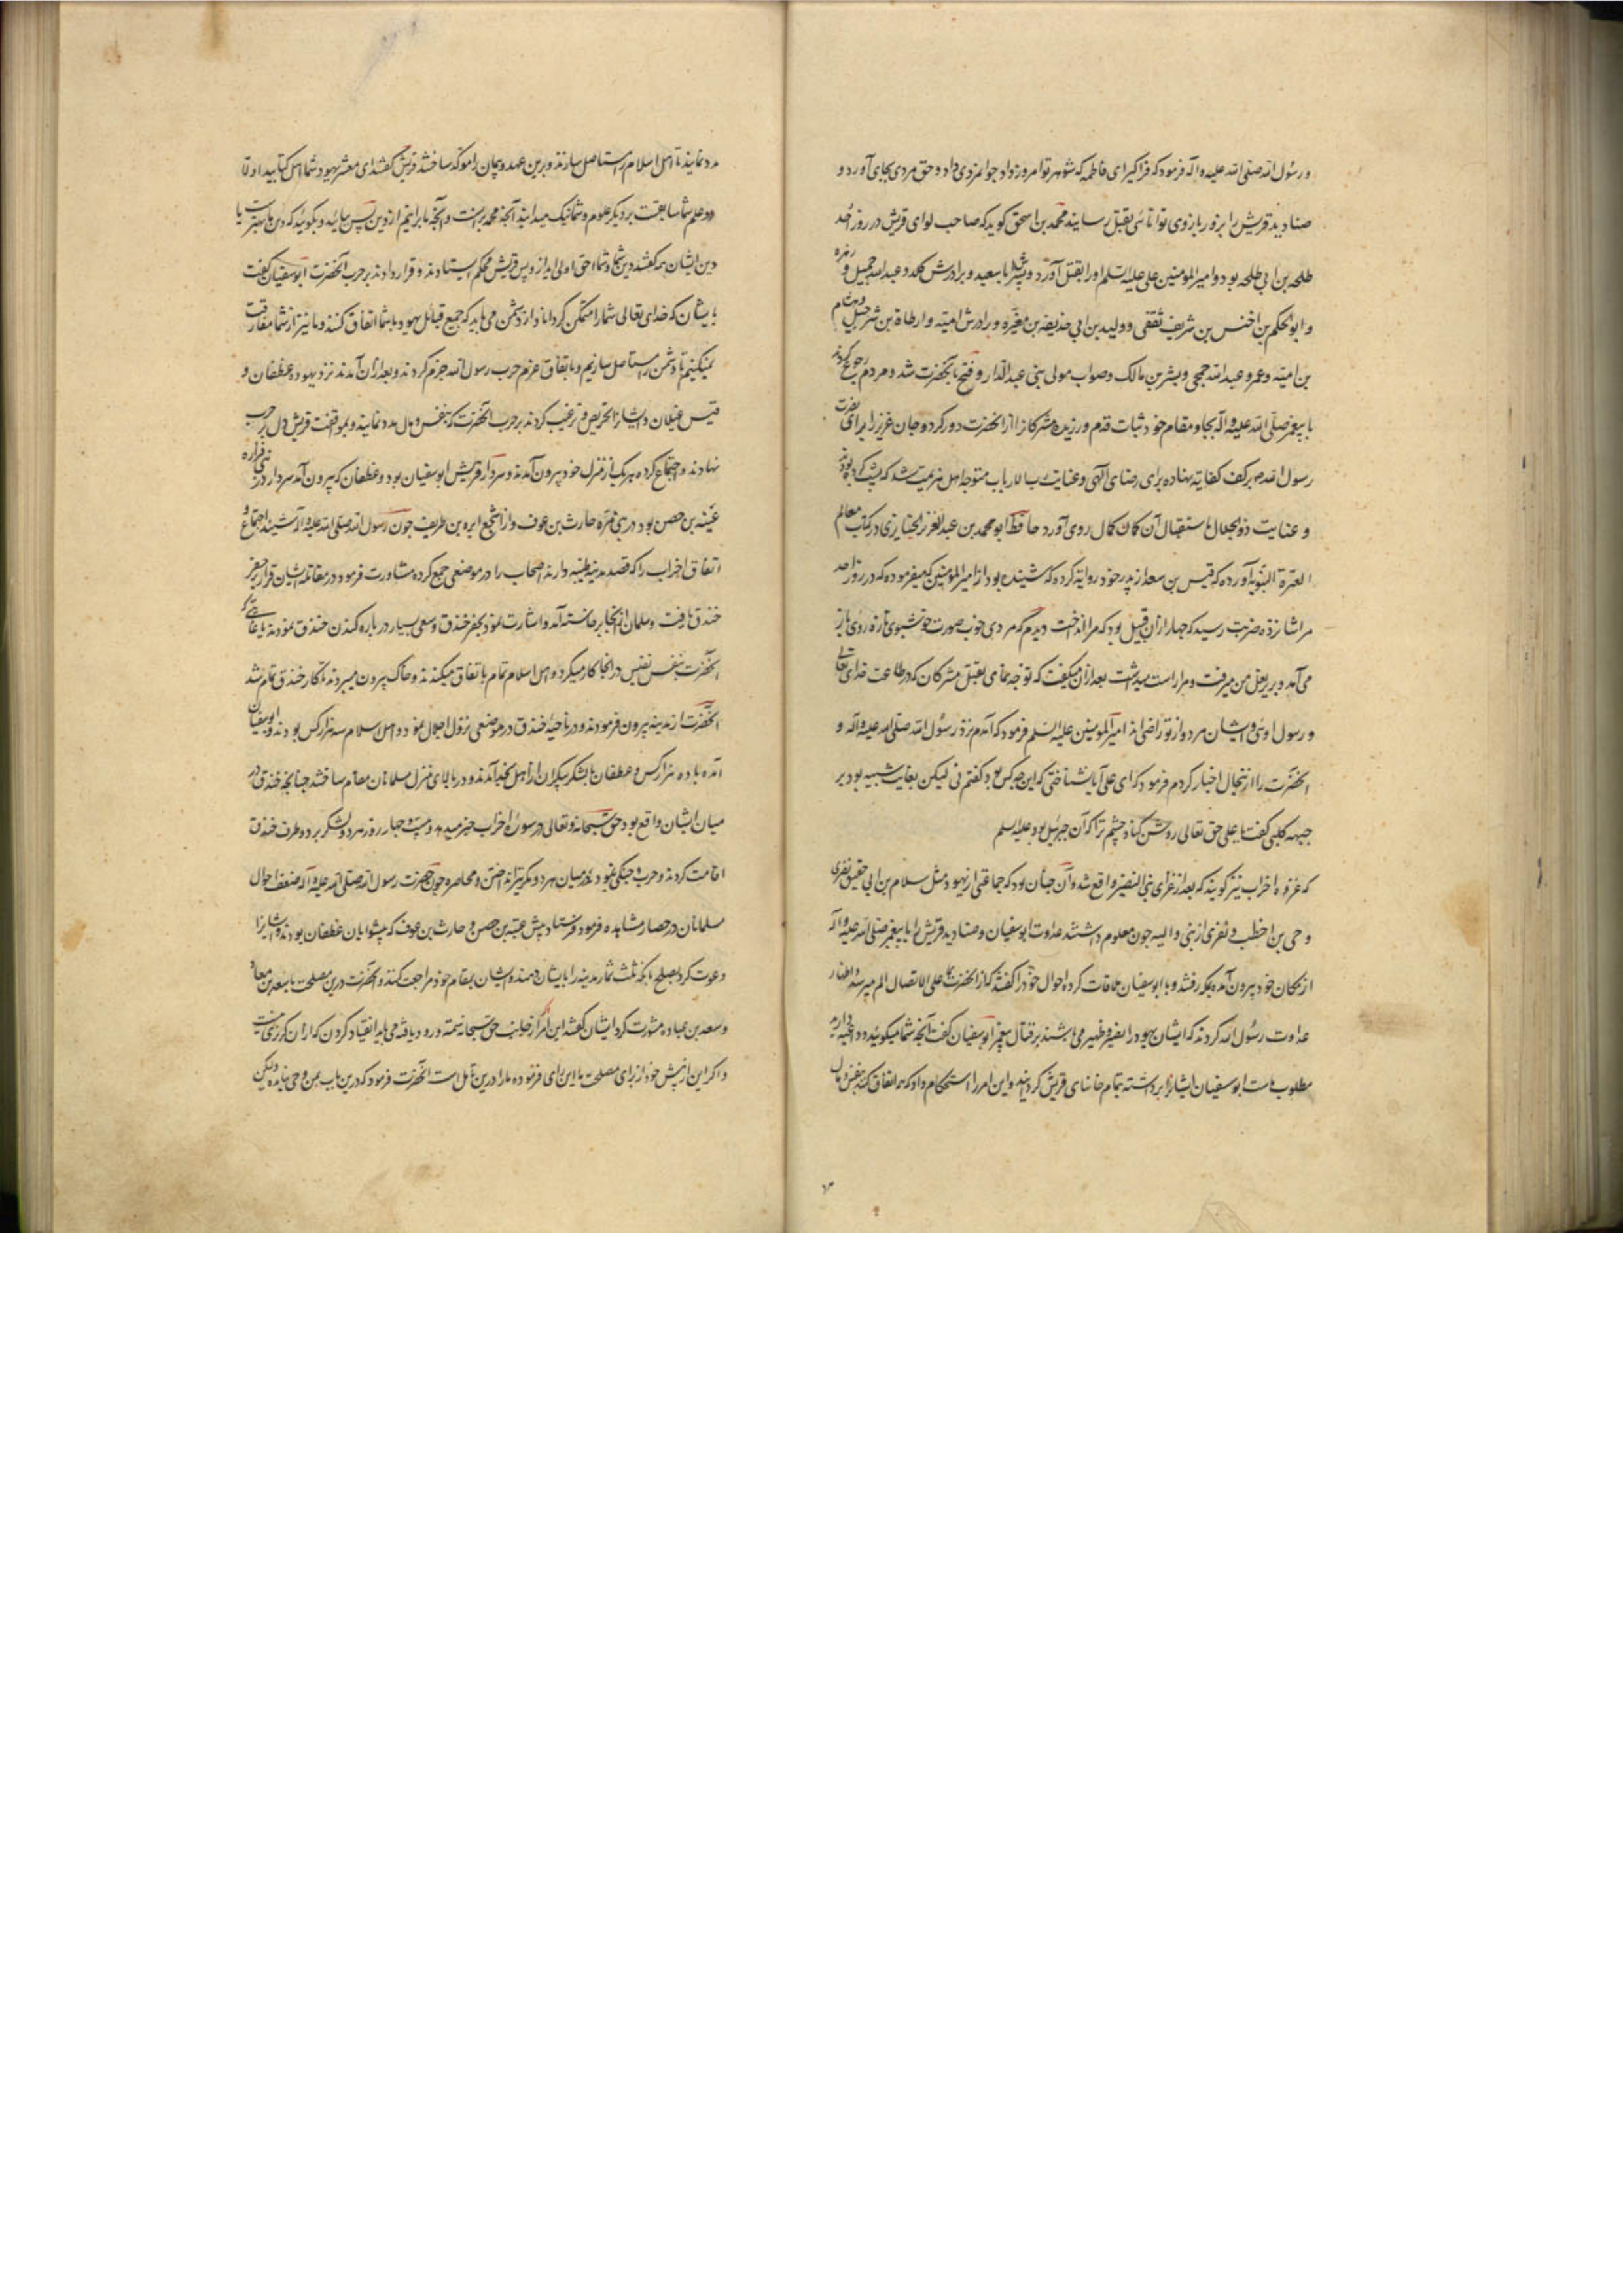 و رسول الله صلی الله علیه و اله فرمود که فراکیر ای فاطمه که شوهر تو امروز داد جوانمردی داد و حق مردی بجای آورد و
صنادید قریش را بزور بازوی توانائی بقتل رسانید محمد بن اسحق کوید که صاحب لوای قریش در روز احد
طلحه بن ابی طلحه بود و امیر المؤمنین علی علیه السلم او را بقتل آورد و پسرش ابا سعید و برادرش کلده و عبد الله جمیل و زهره
و ابو الحکم بن اخنس بن شریف ثقفی و ولید بن ابی حذیفه بن مغیره و برادرش امیه و ارطاة بن شرحبیل و هشام
بن امیه و عمرو عبد الله جمحی و بشر بن مالک و صواب مولی بنی عبد الدار و فتح بآنحضرت شد و مردم رجوع کردند
با پیغمبر صلی الله علیه و اله بجا و مقام خود ثبات قدم ورزیده مشرکانرا از انحضرت دور کرد و جان عزیز را برای نصرت
رسول الله بر کف کفایة نهاده برای رضای آلهی و عنایت رب الارباب متوجه اهل هزیمت شد که بیشتر بودند
و عنایت ذو الجلال باستقبال آن کان کمال روی آورد حافظ ابو محمد بن عبد العزیز الجنابزی در کتاب معالم
العترة النبویه آورده که قیس بن سعد از پدر خود روایة کرده که شنیده بود از امیر المؤمنین که میفرموده که در روز احد
مرا شانزده ضربت رسید که چهار از آن قبیل بود که مرا انداخت دیدم که مردی خوب صورت خوشبوی تازه روی باز
می آمد و زیر بغل من میرفت و مرا راست میداشت بعد از آن میگفت که توجه نمای بقتل مشرکان که در طاعت خدای تعالی
و رسول اوئی و ایشان هر دو از تو راضی اند امیر المؤمنین علیه السلم فرمود که آمدم نزد رسول الله صلی الله علیه و اله و
انحضرت را از انحال اخبار کردم فرمود که ای علی آیا شناختی که این چه کس بود کفتم نی لیکن بغایت شبیه بود بر
حیهه کلبی کفت یا علی حق تعالی روشن کناد چشم ترا که آن جبرئیل بود علیه السلم
که غزوه احزاب نیز کویند که بعد از غزای بنی النضیر واقع شد و آن چنان بود که جماعتی از یهود مثل سلام بن ابی حقیق نضری
و حی بن اخطب و نفری از بنی والیه چون معلوم داشتند عداوت ابو سفیان و صنادید قریش را با پیغمبر صلی الله علیه و اله
از مکان خود بیرون آمده بمکه رفتند و با ابو سفیان ملاقات کرده احوال خود را کفتند که از انحضرت بما علی الاتصال الم میرسد و اظهار
عداوت رسول الله کردند که ایشان یهود را نصیر و ظهیر می باشند بر قتال پیغمبر ابو سفیان کفت آنچه شما میکوئید و داعیه دارید
مطلوب ماست ابو سفیان ایشانرا برداشته بتمام خانهای قریش کردانید و این امر را استحکام داد که همه اتفاق کنند بنفس و مال
مدد نمایند تا اهل اسلام را مستاصل سازند و برین عهد و پیمان را موکد ساختند قریش کفتند ای معشر یهود شما اهل کتابید اولا
و علم شما سابقست بر دیکر علوم و شما نیک میدانید آنچه محمد بر آنست و آنچه ما برانیم از دین پس بیائید و بکوئید که دین ما بهتر است یا
دین ایشان همه کفتند دین شما و شما احق و اولی اید ازو پس قریش محکم ایستادند و قرار دادند بر حرب انحضرت ابو سفیان کفت
بایشان که خدای تعالی شما را متمکن کرداناد از دشمن می باید که جمیع قبائل یهود با شما اتفاق کنند و ما نیز از شما مفارقت
نمیکنیم تا دشمن را مستاصل سازیم و باتفاق عزم حرب رسول الله جزم کردند و بعد از آن آمدند نزد یهود و غطفان و
قیس غیلان و ایشانرا تحریص و ترغیب کردند بر حرب انحضرت که بنفس و مال مدد نمایند و بموافقت قریش دل بر حرب
نهادند و اجتماع کرده هر یک از منزل خود بیرون آمدند و سردار قریش ابو سفیان بود و غطفان که بیرون آمد سردار در بنی فزاره
عیینه بن حصن بود در بنی مره حارث بن عوف و از اشجع ابره بن طریف چون رسول الله صلی الله علیه و اله شنید اجتماع و
اتفاق احزاب را که قصد مدینه طیبه دارند اصحاب را در موضعی جمع کرده مشاورت فرمود در مقاتله ایشان قرار بحفر
خندق یافت و سلمان از انجا برخاسته آمد و اشارت نمود بحفر خندق و سعی بسیار در باره کندن خندق نمودند تا غایتی که
انحضرت بنفس نفیس در انجا کار میکرد و اهل اسلام تمام باتفاق میکندند و خاک بیرون میبردند تا کار خندق تمام شد
انحضرت از مدینه بیرون فرمودند و در ناحیه خندق در موضعی نزول اجلال نمود و اهل اسلام سه هزار کس بودند و ابو سفیان
آمده با ده هزار کس و غطفان با لشکر بیکران از اهل نجد آمدند و در بالای منزل مسلمانان مقام ساختند چنانچه خندق در
میان ایشان واقع بود حق سبحانه و تعالی در سوره احزاب خبر میدهد و بیست و چهار روز هر دو لشکر بر دو طرف خندق
اقامت کردند و حرب و جنکی نبود در میان هر دو مکر تیر انداختن و محاصره و چون حضرت رسول الله صلی الله علیه و اله ضعف احوال
مسلمانان در حصار مشاهده فرمود فرستاد پیش عیینه بن حصن و حارث بن عوف که پیشوایان غطفان بودند و ایشانرا
دعوت کرد بصلح بآنکه ثلث ثمار مدینه را بایشان دهند و ایشان بمقام خود مراجعت کنند و انحضرت درین مصلحت با سعد بن معاذ
و سعد بن عباده مشورت کرد ایشان کفتند این امر از جانب حق سبحانه سمت ورود یافته می باید انقیاد کردن که از آن کریزی نیست
و اکر این از پیش خود از برای مصلحت ما این رای فرموده ما را درین تأمل است انحضرت فرمود که درین باب بمن وحی نیامده و لیکن